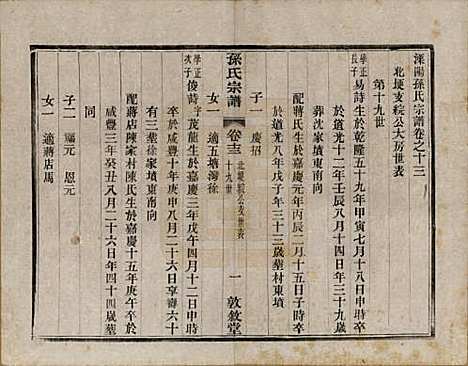 溧陽孫氏宗譜卷之十三
北埂支綬公大房世表
第十九世
學正長子
易詩生於乾隆五十九年甲寅七月十八日申時卒
於道光十二年壬辰八月十四日辰時年三十九歲
葬沈家墳東南向
配蔣氏生於嘉慶元年丙辰二月十五日子時卒
於道光八年戊子年三十三歲葬村東墳
子一 慶招
女一 適五塘灣徐
孫氏宗譜 卷十三 十九世 一 敦敘堂
學正次子
俊詩字茂龍生於嘉慶三年戊午四月十二日申時
卒於咸豐十年庚申八月二十六日享壽六十
有三葬徐家墳東南向
配蔣店陳家村陳氏生於嘉慶十五年庚午卒於
咸豐三年癸丑八月二十六日年四十四歲葬
同
子二 福元 恩元
女一 適蔣店馬